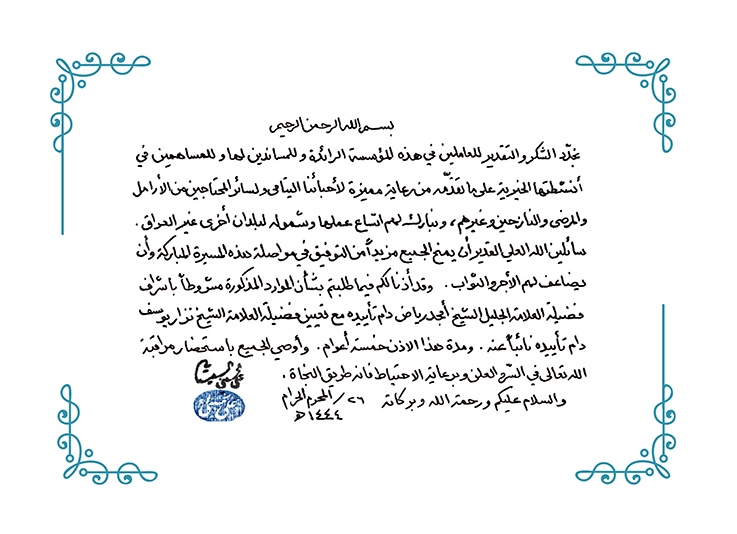 بسم الله الرحمن الرحيم
نجدّد الشكر والتقدير للعاملين في هذه المؤسسة الرائدة وللمساندين لها وللمساهمين في
أنشطتها الخيرية على ما تقدّمه من رعاية مميزة لأحبائنا اليتامى ولسائر المحتاجين من الأرامل
والمرضى والنازحين وغيرهم، ونبارك لهم اتساع عملها وشموله لبلدان أخرى غير العراق.
سائلين الله العلي القدير أن يمنح الجميع مزيداً من التوفيق في مواصلة هذه المسيرة المباركة وأن
يضاعف لهم الأجر والثواب. وقد أذنا لكم فيما طلبتم بشأن الموارد المذكورة مشروطاً باشراف
فضيلة العلامة الجليل الشيخ أمجد رياض دام تأييده مع تعيين فضيلة العلامة الشيخ نزار يوسف
دام تأييده نائباً عنه. ومدة هذا الاذن خمسة أعوام. وأوصي الجميع باستحضار مراقبة
الله تعالى في السر والعلن وبرعاية الاحتياط فانه طريق النجاة.
والسلام عليكم ورحمة الله وبركاته ٢٦/ المحرم الحرام
١٤٤٤ هـ